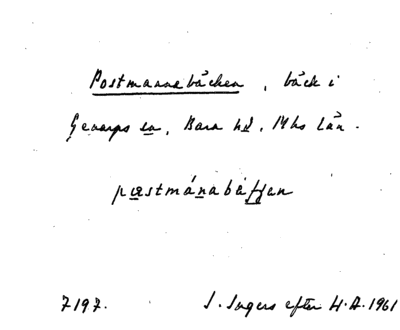 Postmannabäcken, bäck i
Genarps sn, Bara hd, Mhs län.
pæstmánabäƒʃan
7197. I. Ingers efter H.A. 1961